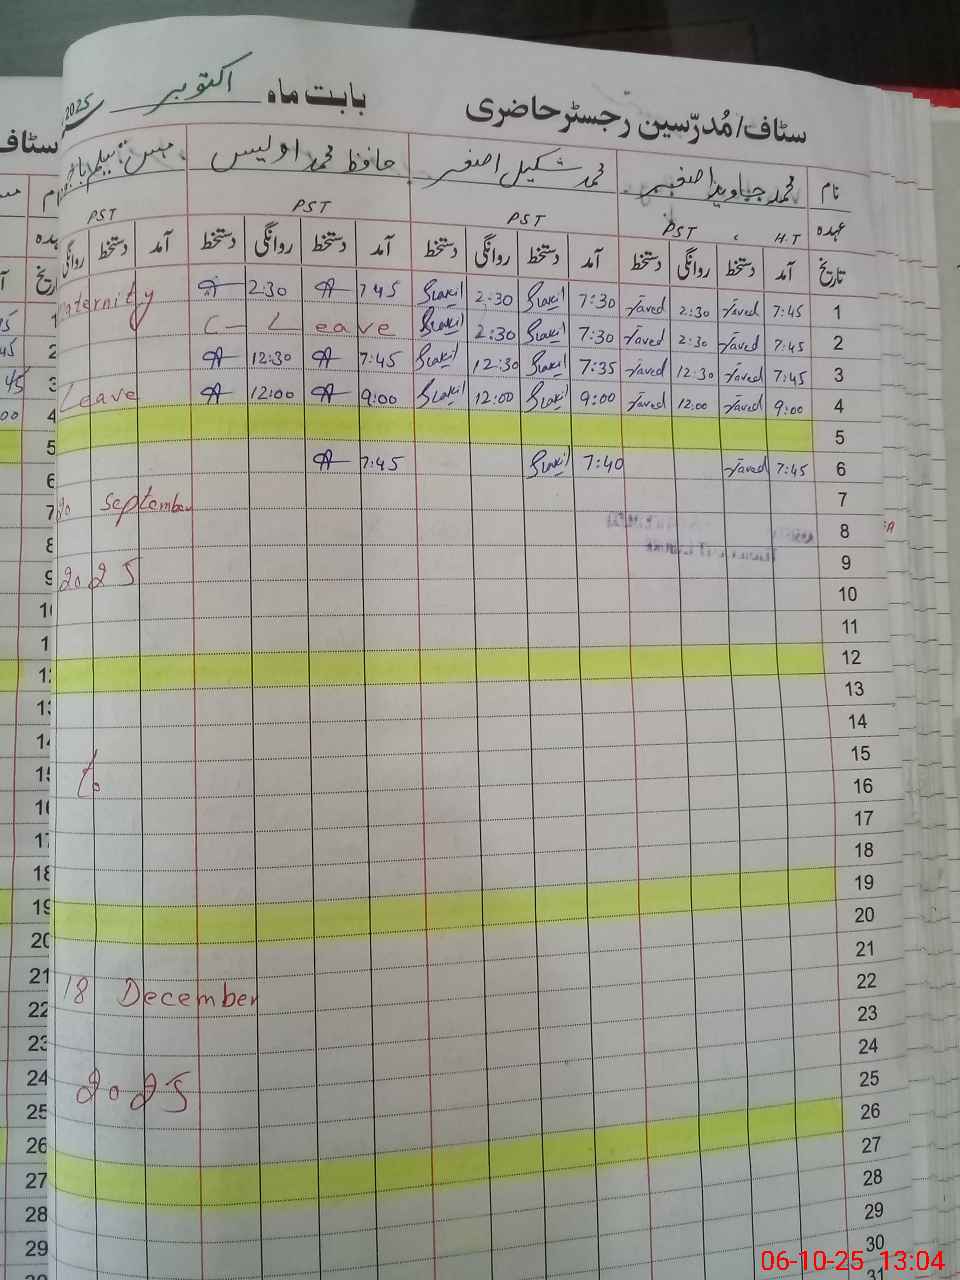 سٹاف/مُدرّسین رجسٹر حاضری بابت ماہ اکتوبر 2025
نام محمد جاوید اصغر محمد شکیل اصغر حافظ محمد اویس مس
عہدہ H.T PST PST PST PST
تاریخ آمد دستخط روانگی دستخط آمد دستخط روانگی دستخط آمد دستخط روانگی دستخط آمد دستخط روانگی
1 7:45 Javed 2:30 Javed 7:30 Shakil 2:30 Shakil 7:45 2:30 Maternity
2 7:45 Javed 2:30 Javed 7:30 Shakil 2:30 Shakil C-Leave
3 7:45 Javed 12:30 Javed 7:35 Shakil 12:30 Shakil 7:45 12:30
4 9:00 Javed 12:00 Javed 9:00 Shakil 12:00 Shakil 9:00 12:00 Leave
5
6 7:45 Javed 7:40 Shakil 7:45
7 20 September
8
9 2025
10
11
12
13
14
15 to
16
17
18
19
20
21
22 18 December
23
24
25 2025
26
27
28
29
30
31
06-10-25 13:04